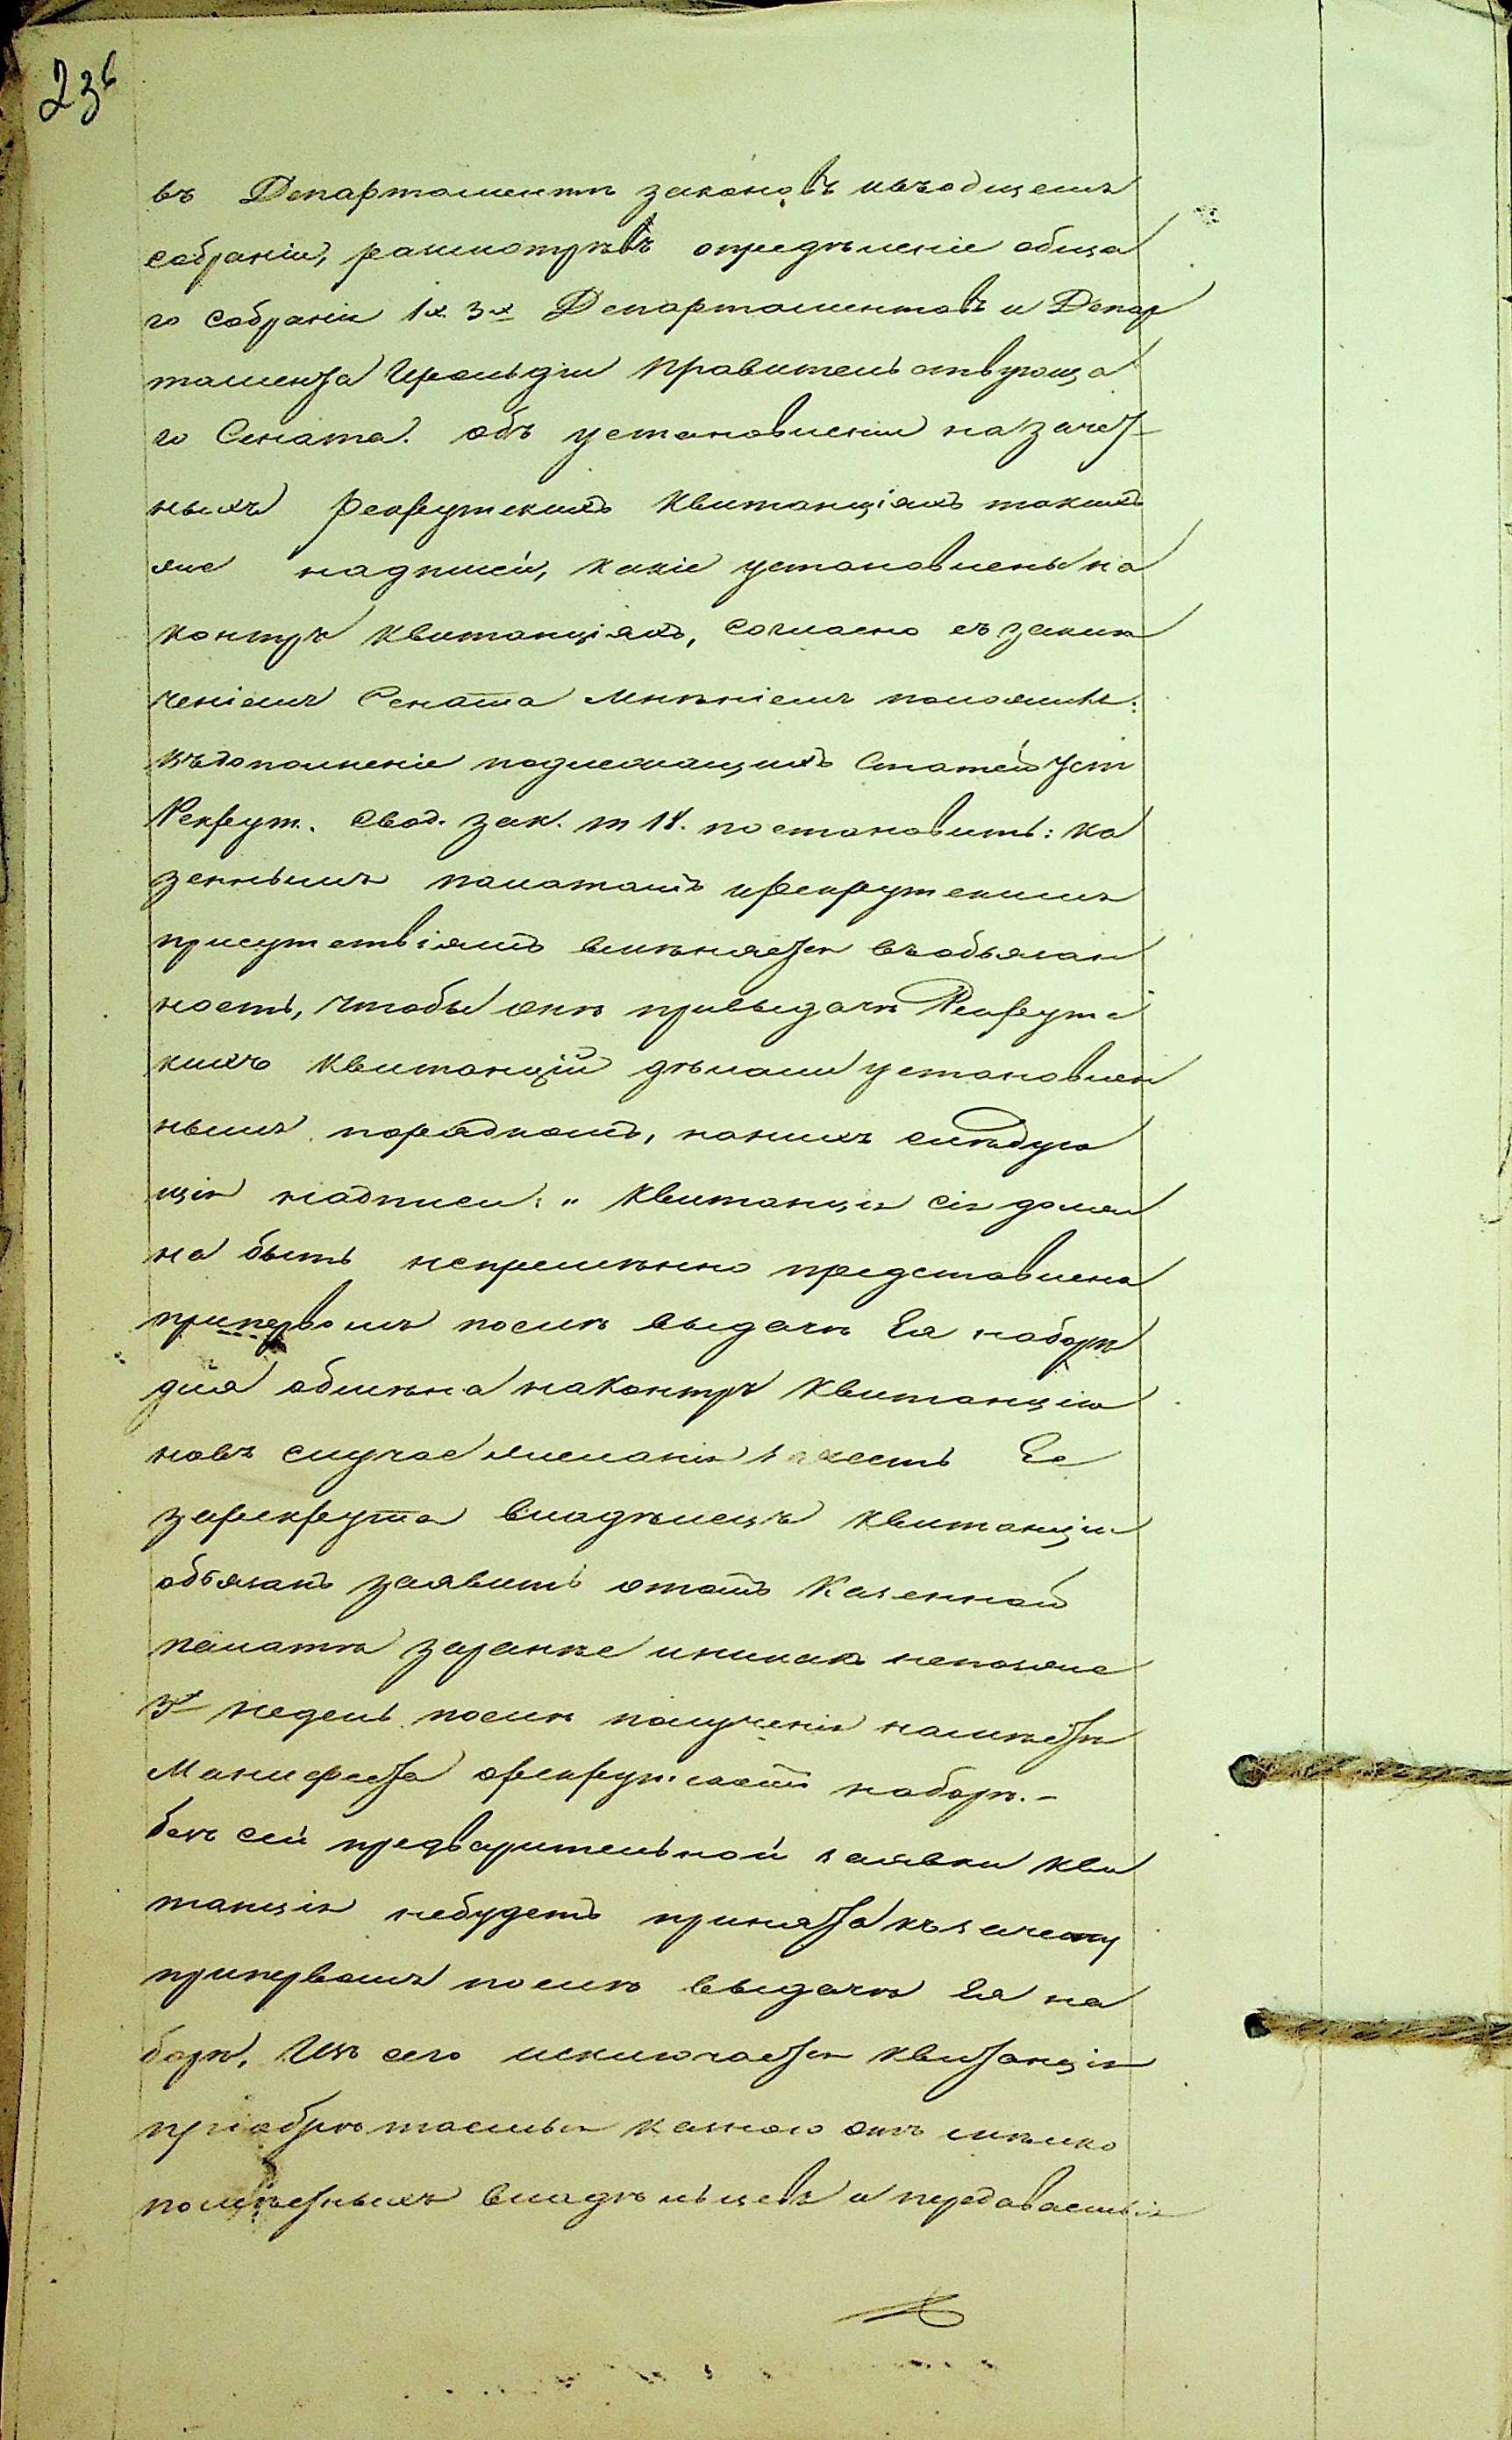 236
въ Департаментѣ законовъ ивъобщемъ
собраніи, разсмотрѣвъ опредѣленіе обща
го собранія 1х. 3х Департаментовъ и Депар
тамента Герольдіи Правительствующа
го Сената. объ установленіи на зачет-
ныхъ рекрутскихъ квитанціяхъ такихъ
же надписей, какіе установлены на
контръ квитанціяхъ, согласно съ заклю
ченіемъ Сената мнѣніемъ положилъ:
въдополненіе подлежащихъ Статей Уст
Рекрут. Свод. зак. т 14. постановить: ка
зеннымъ палатамъ ирекрутскимъ
присутствіямъ вмѣняется въобязан
ность, чтобы онѣ привыдачѣ Рекрутс
кихъ квитанцій дѣлали установлен
нымъ порядкомъ, нанихъ слѣдую
щія надписи: „ квитанція сія долж
на быть непремѣнно представлена
припервомъ послѣ выдачи Ея наборѣ
для обмѣна наконтръ квитанцію
новъ случаѣ желанія зачесть Ее
зарекрута владѣлецъ квитанціи
обязанъ заявить отомъ Казенной
палатѣ заранѣе иникакъ непозже
3х недель послѣ полученія намѣстѣ
Манифеста орекрутскомъ наборѣ.-
безъ сей предварительной заявки кви
танція небудетъ принята къзачету
припервомъ послѣ выдачи Ея на
борѣ, Изъ сего исключается квитанція
пріобрѣтаемыя казною отъ мѣлко
помѣстныхъ владѣльцевъ и передаваемыя